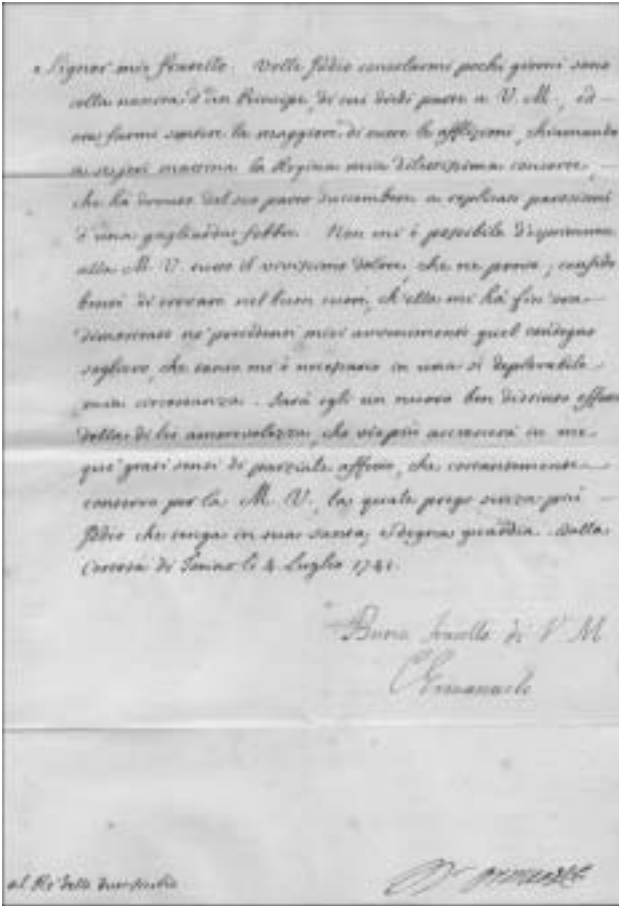 Signor mio fratello. Volle Iddio consolarmi pochi giorni sono
colla nascita d'un Principe, di cui diedi parte a V. M., ed
ora farmi sentire la maggiore di tutte le afflizioni, chiamando
a se jeri mattina la Regina mia dilettissima consorte,
che ha dovuto del suo parto succombere a replicati parosismi
d'una gagliarda febbre. Non mi è possibile d'esprimere
alla M. V. tutto il vivissimo dolore, che ne provo; confido
bensì di trovare nel buon cuore, ch'ella mi hà fin ora
dimostrato ne' precedenti miei avvenimenti quel condegno
sollievo, che tanto mi è necessario in una sì deplorabile
mia circostanza. Sarà egli un nuovo ben distinto effetto
della di lei amorevolezza, che vie più accrescerà in me
que' grati sensi di parziale affetto, che costantemente
conservo per la M. V., la quale prego senza più
Iddio che tenga in sua santa, e degna guardia. Dalla
di li 4 Luglio 1741.
Buon fratello di V M
C Emanuele
al Rè delle due Sicilie